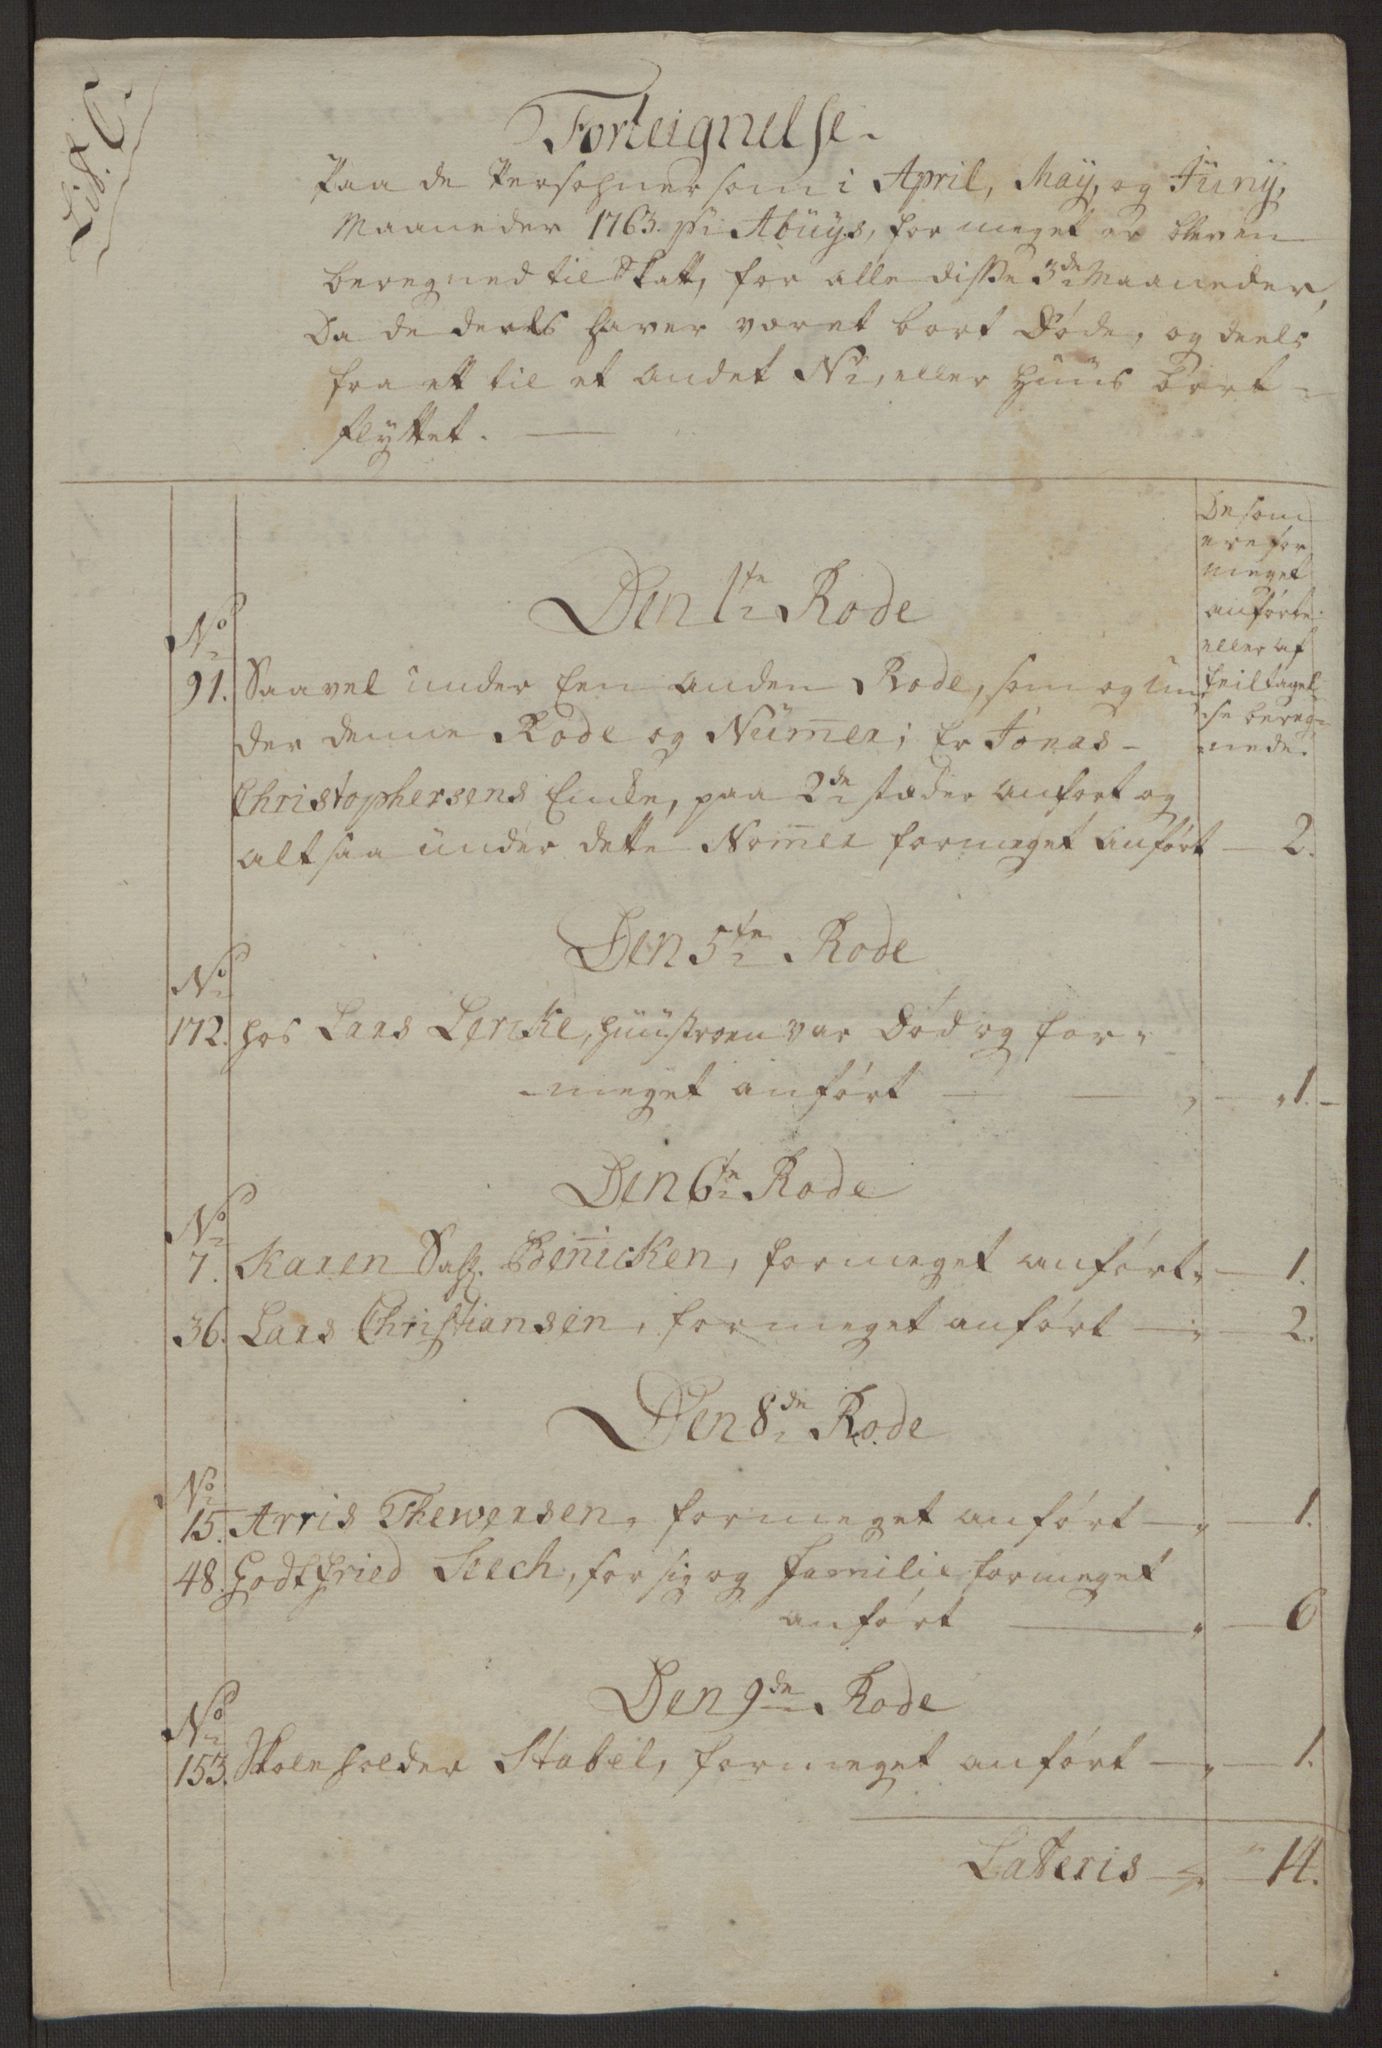 Lit. C.
Forteignelse
Paa de Persohner som i April, May, og Juny,
Maaneder 1763. pr Abuys, for meget er bleven
beregned til Skatt, for alle disse 3de Maaneder,
Da de deels haver været bort Døde, og deels
fra ett til et andet No, eller Huus bort-
flyttet.
De som
ere for
meget
anførte
eller af
feiltagel-
se bereg-
nede.
Den 1te Rode
No
91. Saavel under Een anden Rode, som og un-
der denne Rode og Numer; Er Jonas
Christophersens Encke, paa 2de stæder anført og
altsaa under dette Nomer formeget anført 2.
Den 5te Rode
No
172. hos Lars Lericke, Huustroen var Død og for-
meget anført 1.
Den 6te Rode
No
7. Karen Sal. Benicken, formeget anført 1.
36. Lars Christiansen, formeget anført 2.
Den 8de Rode
No
15. Arris Thewersen, formeget anført 1.
48. Godtfried Seech, for sig og Familie formeget
anført 6
Den 9de Rode
No
153. Skoleholder Stabel, formeget anført 1.
Lateris 14.